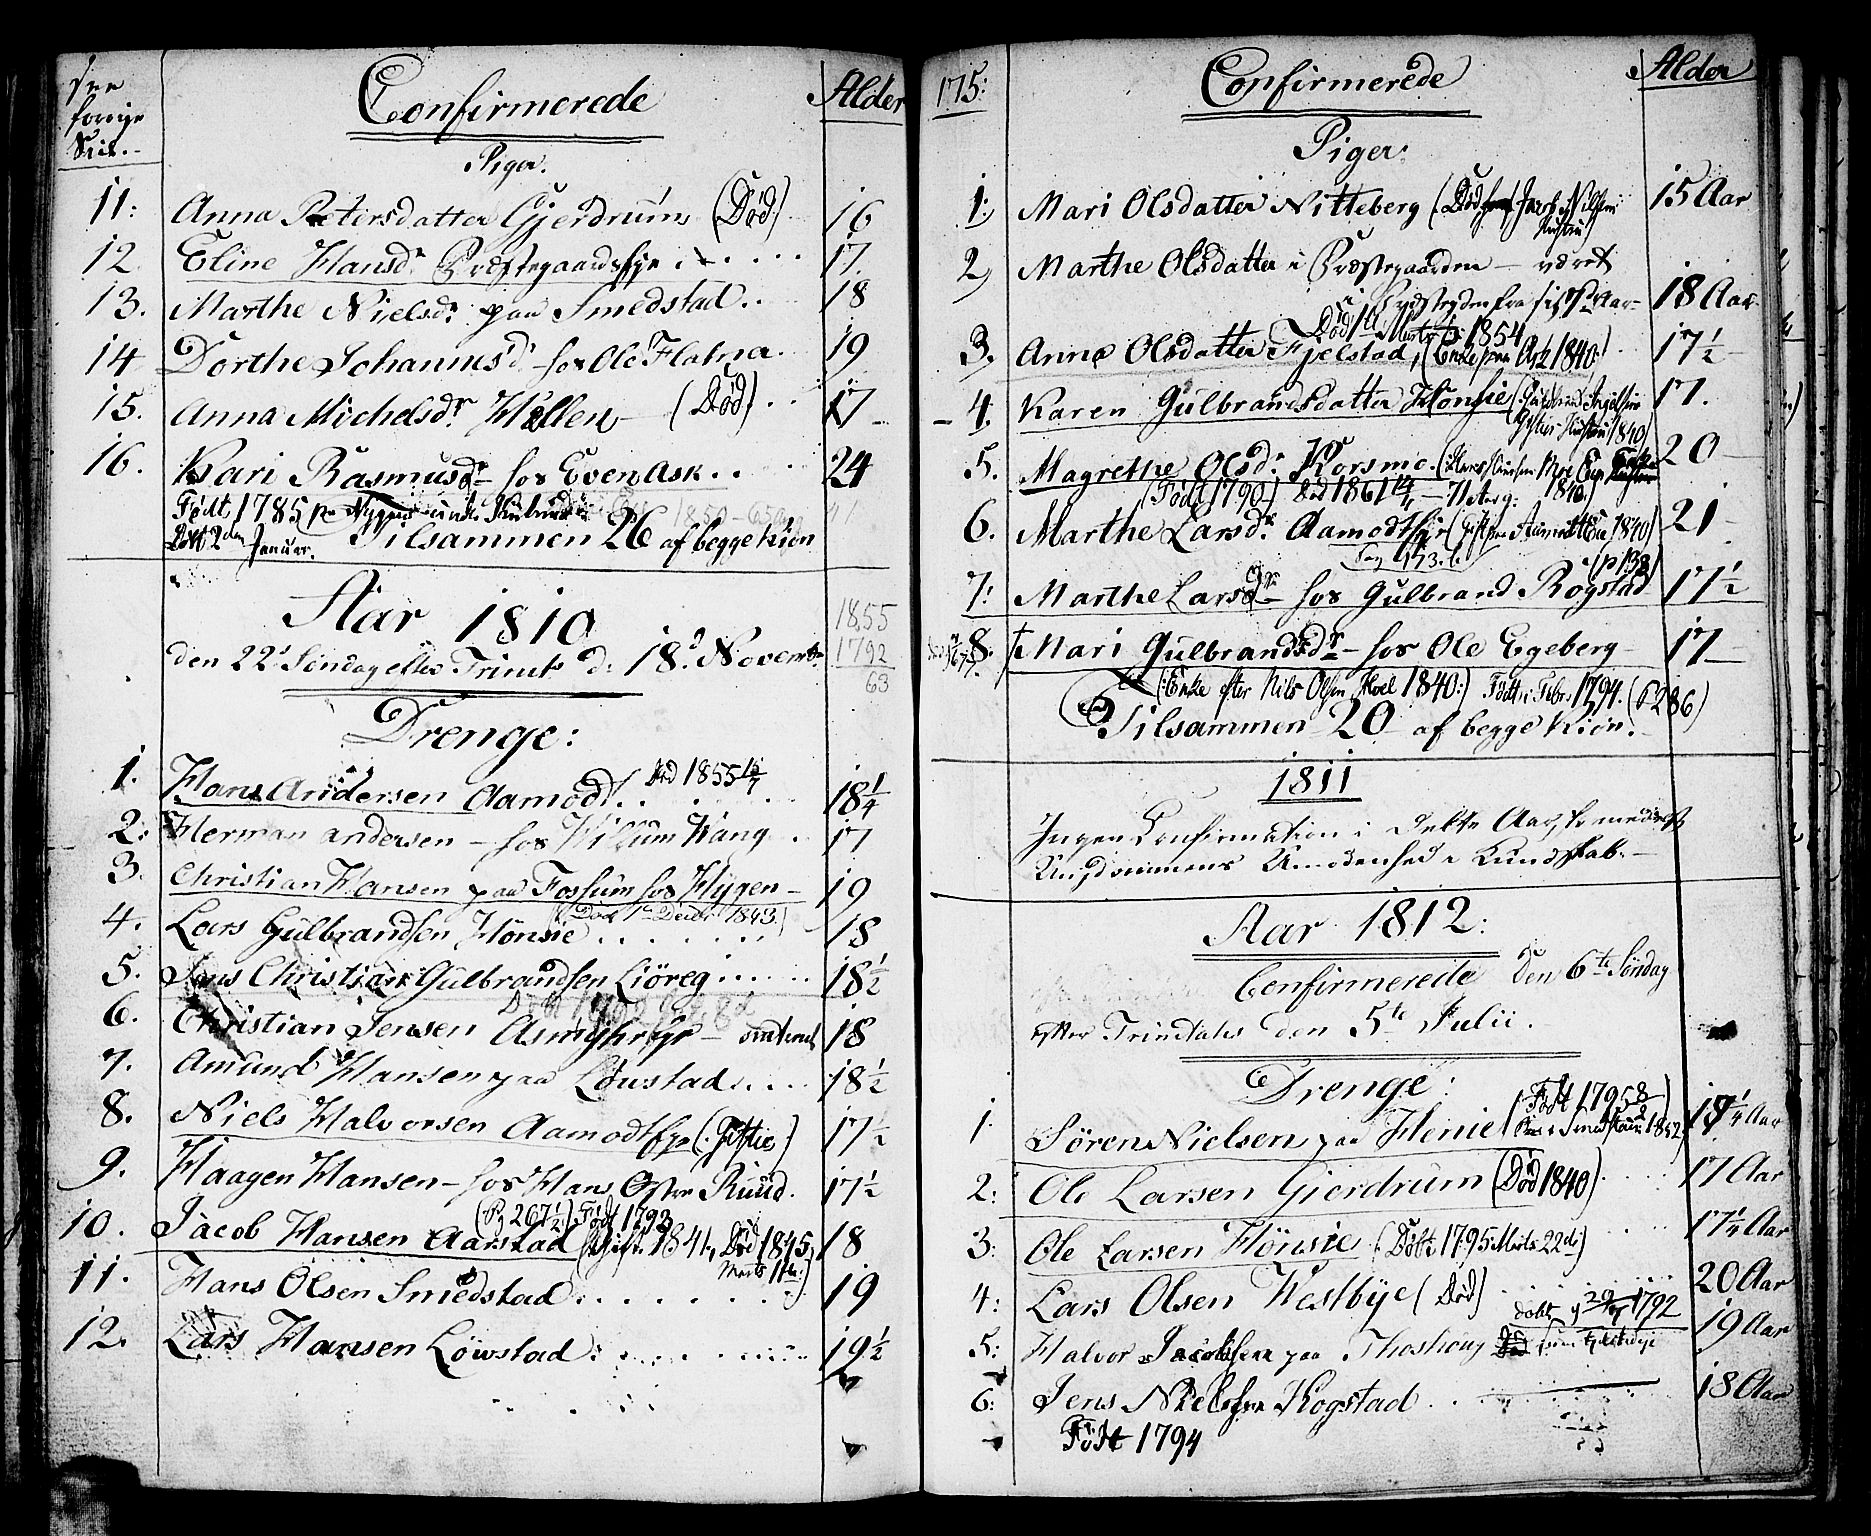 see
forrige
Side.
Confirmerede
Alder
Piger.
11: Anna Petersdatter Gjerdrum (Død) 16
12. Eline Hansd. Præstegaardseje 17.
13. Marthe Nielsd. paa Smedstad 18
14 Dorthe Johannisd. hos Ole Flatna 19
15. Anna Michelsdr. Hellen (Død) 17
16. Kari Rasmusdr. hos Even Ask 24
Født 1785 1850
Døbt 2den Januar. Tilsammen 26 af begge Kiøn
Aar 1810
den 22. Søndag efter Trinit. d: 18. Novembr
1855
1792
63
Drenge:
1. Hans Andersen Aamodt Død 1855 18 1/4
2: Herman Andersen hos Willum Wang 17
3. Christian Hansen paa Fossum hos Hygen 19
(Død 1843)
4. Lars Gulbrandsen Hønsie 18
5. Jens Christian Gulbrandsen Liöreg 18 1/2
6. Christian Jensen Asmyhreje omtrent 18
7. Amund Hansen paa Løwstad 18 1/2
8. Niels Halvorsen Aamodteje (Giftes) 17 1/2
9. Haagen Hansen hos Hans Østre Ruud. 17 1/2
(Pg 267 1/2) Født 1793
10. Jacob Hansen Aarstad (Gift 1841, Død 1845, 18
Marts 11te)
11. Hans Olsen Smedstad 19
12. Lars Hansen Løwstad 19 1/2
175:
Confirmerede
Alder
Piger:
1. Mari Olsdatter Nitteberg (Død Jacob Nilsen 15 Aar
2, Marthe Olsdatter i Præstegaarden været
fra 18 Aar
Død Marts 1854
3. Anne Olsdatter Fjelstad, (Enke paa Ask 1840) 17 1/2
4. Karen Gulbrandsdatter Hønsie 17.
1840)
5. Magrethe Olsd. Korsmo. 20
(Født 1790) Død 1861 71 Aar g: 1840.
6. Marthe Larsd. Aamodteje 1840) 21
Pag 173. b
(p 138)
7: Marthe Larsdr. hos Gulbrand Rogstad 17 1/2
8: † Mari Gulbrandsdr. hos Ole Egeberg 17
(Enke efter Nils Olsen Hoel 1840:) Født i Febr. 1794. (P 286)
Tilsammen 20 af begge Kiøn.
1811
Ingen Confirmation i dette Aar, formedelst
Ungdommens Umodenhed i Kundskab.
Aar 1812:
Confirmerede Den 6te Søndag
efter Trinitatis den 5te Julii.
Drenge:
Født 1795
1. Søren Nielsen paa Henie 1842 1/4 Aar
2: Ole Larsen Gjerdrum (Død 1840) 17 Aar
3: Ole Larsen Hønsie (Døbt 1795 Marts 22de) 17 1/4 Aar
4: Lars Olsen Westbye (Død) 20 Aar
døbt 29 1792
5: Halvor Jacobsen paa 19 Aar
6: Jens Nielsen Kogstad 18 Aar
Født 1794